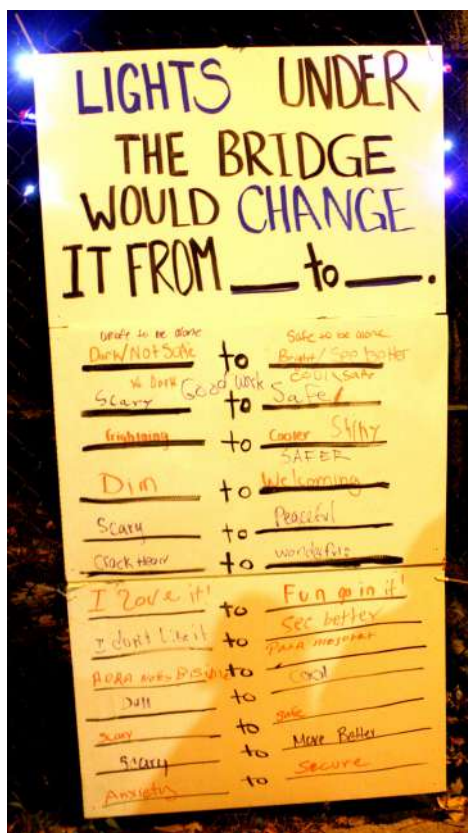 LIGHTS UNDER
THE BRIDGE
WOULD CHANGE
IT FROM ___ to ___.
unsafe to be alone Safe to be alone
Dark/Not Safe to Bright/See better
Good work
Scary to Safe!
Frightning to Cooler Shiny
SAFER
Dim to Welcoming
Scary to Peaceful
to wonderful
I love it! to Fun go in it!
I don't like it to See better
to Para mejorar
Dull to Cool
scary to safe
Scary to More Better
Anxiety to Secure